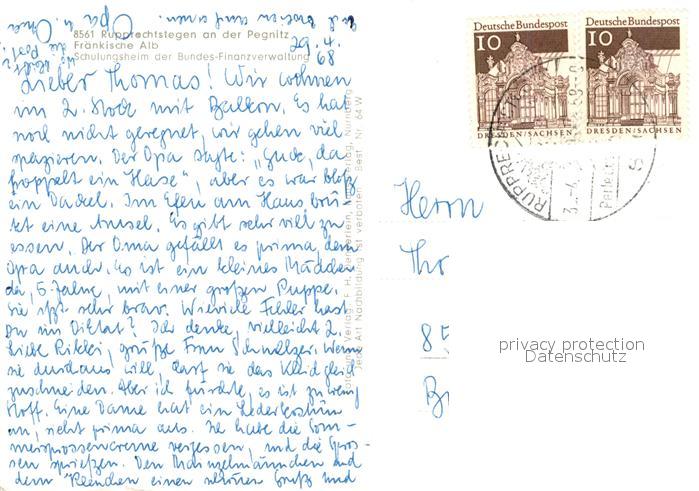 8561 Rupprechtstegen an der Pegnitz
Fränkische Alb
Schulungsheim der Bundes-Finanzverwaltung
29.4.
68
Lieber Thomas! Wir wohnen
im 2. Stock mit Balkon. Es hat
noch nicht geregnet, wir gehen viel
spazieren. Der Opa sagte: „Gude, da
hoppelt ein Hase", aber es war bloß
ein Dackel. Im Efeu am Haus brü-
tet eine Amsel. Es gibt sehr viel zu
essen. Der Oma gefällt es prima, dem
Opa auch. Es ist ein kleines Mädchen
da, 5 Jahre, mit einer großen Puppe.
Sie ißt sehr brav. Wieviele Fehler hast
Du im Diktat? Ich denke, vielleicht 2.
Liebe Rikkei, grüße Frau Schmelzer. Wenn
sie durchaus will, darf sie das Kleid gleich
zuschneiden. Aber ich fürchte, es ist zu wenig
Stoff. Eine Dame hat ein Lederkostüm
an, sieht prima aus. Ich habe die Som-
mersprossencreme vergessen, und die Spros-
sen sprießen. Den Mainzelmännchen und
dem einen schönen Gruß und
Opa u. Oma
Deutsche Bundespost
10
DRESDEN/SACHSEN
Deutsche Bundespost
10
DRESDEN/SACHSEN
RUPPRECHT
Herrn
Tho
85
privacy protection
Datenschutz